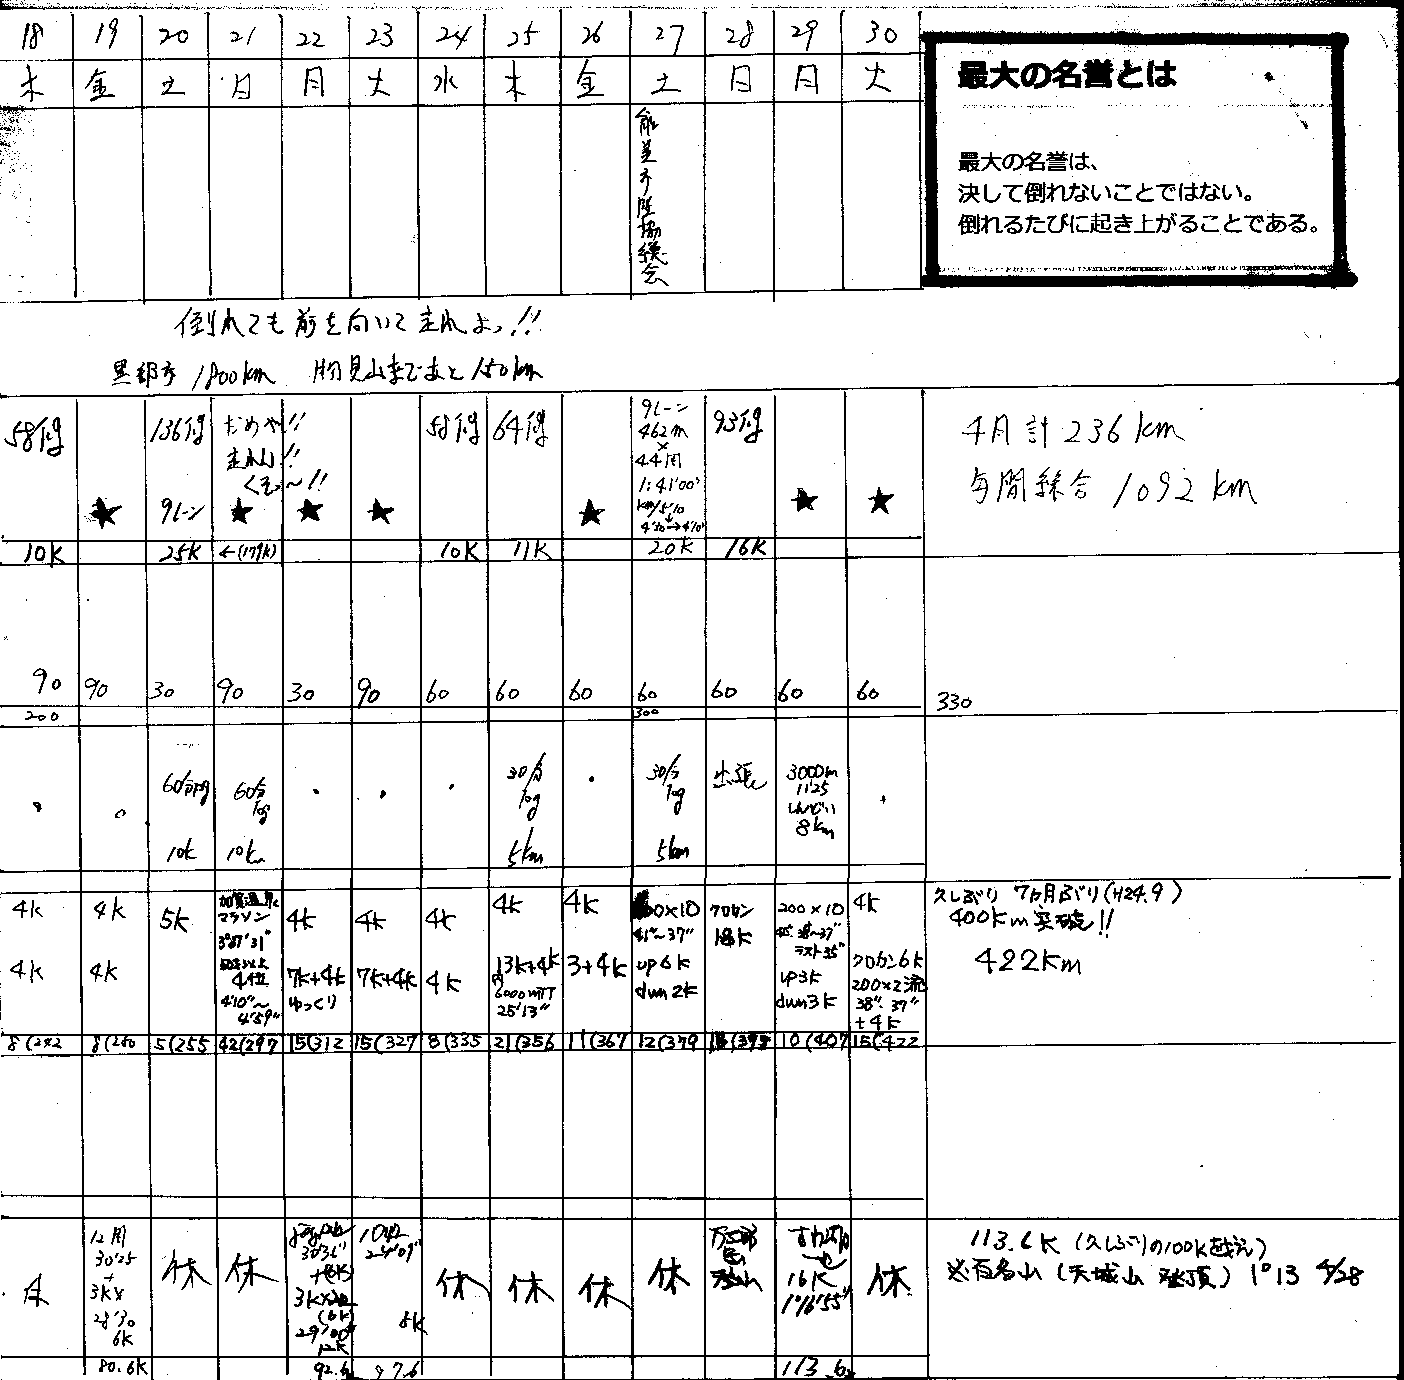 18 19 20 21 22 23 24 25 26 27 28 29 30
木 金 土 日 月 火 水 木 金 土 日 月 火
最大の名誉とは
最大の名誉は、
決して倒れないことではない。
倒れるたびに起き上がることである。
能美市陸協総会
倒れても前を向いて走れよっ!!
黒部市 1800km 朋見山まであと150km
58分 136分 だめや!! 58分 64分 9レーン 93分
走れん!! 462m
くそ〜!! ×
44周
★ 9レーン ★ ★ ★ ★ 1:41'00" ★ ★
km/5'10
4月計 236km
年間総合 1092km
10K 25K ←(179K) 10K 11K 20K 16K
90 90 30 90 30 90 60 60 60 60 60 60 60 330
200 300
60分jog 60分jog 30分jog 30分jog 出張 3000m
11'25
しんどい
8km
10K 10k 5km 5km
4K 4K 5K 加賀温泉 4K 4K 4K 4K 4K 200×10 クロカン 200×10 4K
マラソン 45"〜37" 18K
3°07'31" ラスト35"
4K 4K 4位 7K+4K 7K+4K 4K 13K+4K 3+4K up6K up3K クロカン6K
4'10"〜 ゆっくり 6000mTT dwn2K dwn3K 200×2流
4'59" 25'13" 38".37"
+4K
久しぶり 7カ月ぶり(H24.9)
400km突破!!
422km
8(242 8(250 5(255 42(297 15(312 15(327 8(335 21(356 11(367 12(379 18(397 10(407 15(422
12周
30'25
+
3K×
28'30
6K
休 休
3K×
(6K)
29'00"
12K
24'09"
8K
休 休 休 休
登山
16K
1°16'55"
休
113.6K (久しぶりの100K越え)
※百名山 (天城山 登頂) 1°13 4/28
80.6K 92.6 97.6 113.6